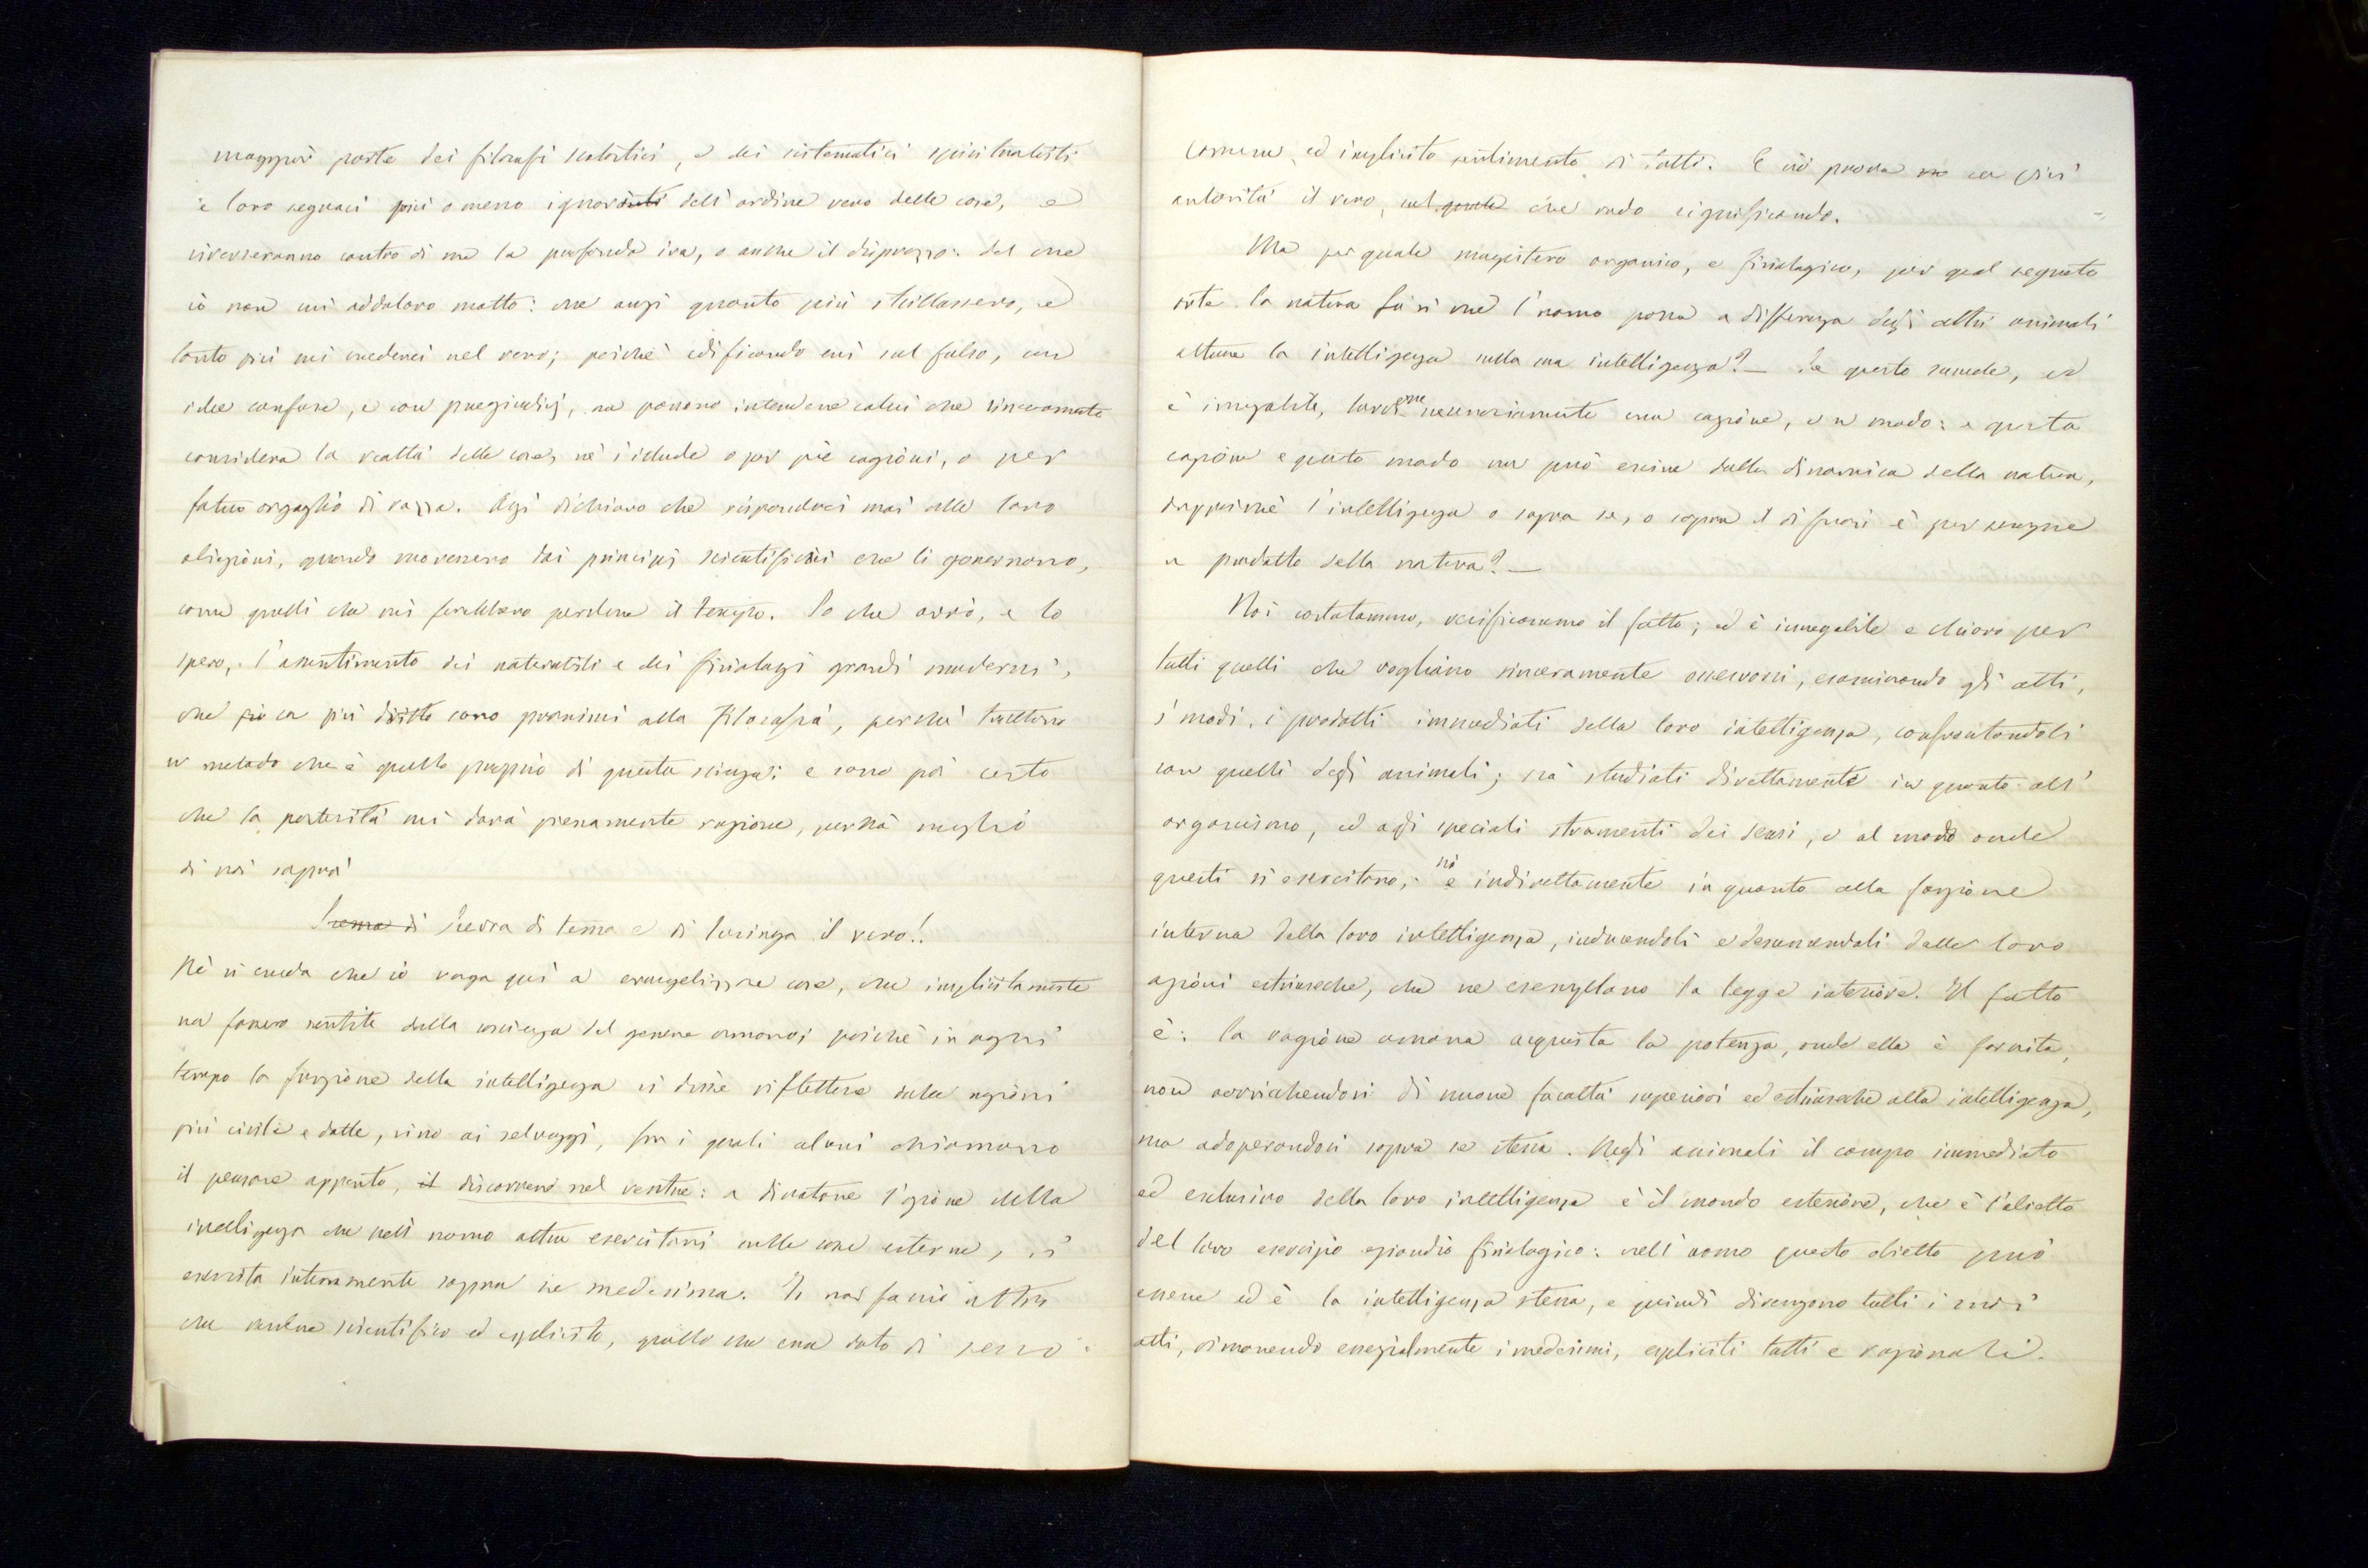 maggior parte dei filosofi scolastici, e dei sistematici spiritualisti
e loro seguaci più o meno ignoranti dell'ordine vero delle cose, e
riverseranno contro di me la profonda ira, o anche il disprezzo: del che
io non mi addoloro molto: che anzi quanto più strillassero, e
tanto più mi crederei nel vero; poichè edificando essi sul falso, con
idee confuse, e con pregiudizj, no possono intendere colui che sinceramente
considera la realtà delle cose, nè s'illude o per pie cagioni, o per
fatuo orgoglio di razza. Anzi dichiaro che risponderei mai alle loro
obiezioni, quando movessero dai principj scientifici che li governano,
come quelli che mi farebbero perdere il tempo. Io che avrò, e lo
spero, l'assentimento dei naturalisti e dei fisiologi grandi moderni,
che co più diritto sono prossimi alla filosofia, perchè trattano
u metodo che è quello proprio di questa scienza: e sono poi certo
che la posterità mi darà pienamente ragione, perchè meglio
di noi saprà
Scevra di tema e di lusinga il vero!.
Nè si creda che io venga quì a evangelizzare cose, che implicitamente
no fossero sentite dalla coscienza del genere umano; poichè in ogni
tempo la funzione della intelligenza si disse riflettere dalle nazioni
più civili e dotte, sino ai selvaggi, fra i quali alcuni chiamano
il pensare appunto, il discorrere nel ventre: a dinotare l'azione della
intelligenza che nell'uomo oltre esercitarsi sulle cose esterne, si
esercita internamente sopra se medesima. Io noi faccio altro
che rendere scientifico ed esplicito, quello che era dato di senso
comune, ed implicito sentimento di tutti. E ciò prova co più
autorità il vero, che vado significando.
Ma per quale magistero organico, e fisiologico, per qual segreta
arte la natura fa sì che l'uomo possa a differenza degli altri animali
attuare la intelligenza nella sua intelligenza? — Se questo succede, ed
è innegabile, havvene necessariamente una cagione, e u modo: e questa
cagione e questo modo no può escire dalla dinamica della natura,
dappoichè l'intelligenza o sopra se, o sopra il di fuori è pur sempre
u prodotto della natura? —
Noi costatammo, verificammo il fatto; ed è innegabile e chiaro per
tutti quelli che vogliano sinceramente osservarsi, esaminando gli atti,
i modi, i prodotti immediati della loro intelligenza, confrontandoli
con quelli degli animali; sia studiati direttamente in quanto all'
organismo, ed agli speciali stromenti dei sensi, e al modo onde
questi si esercitano, sia indirettamente in quanto alla fazione
interna della loro intelligenza, inducendoli e desumendoli dalle loro
azioni estrinseche, che ne esemplano la legge interiore. Il fatto
è: la ragione umana acquista la potenza, onde ella è fornita,
non arricchendosi di nuove facoltà superiori ed estrinseche alla intelligenza,
ma adoperandosi sopra se stessa. Negli animali il campo immediato
ed esclusivo della loro intelligenza è il mondo esteriore, che è l'obietto
del loro esercizio eziandio fisiologico: nell'uomo questo obietto può
essere ed è la intelligenza stessa, e quindi divengono tutti i suoi
atti, rimanendo essenzialmente i medesimi, espliciti tutti e razionali.